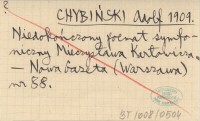 ?
CHYBIŃSKI Adolf 1909.
Niedokończony poemat symfo-
niczny Mieczysława Karłowicza.
— Nowa Gazeta (Warszawa)
nr 58.
BT 1008/0504